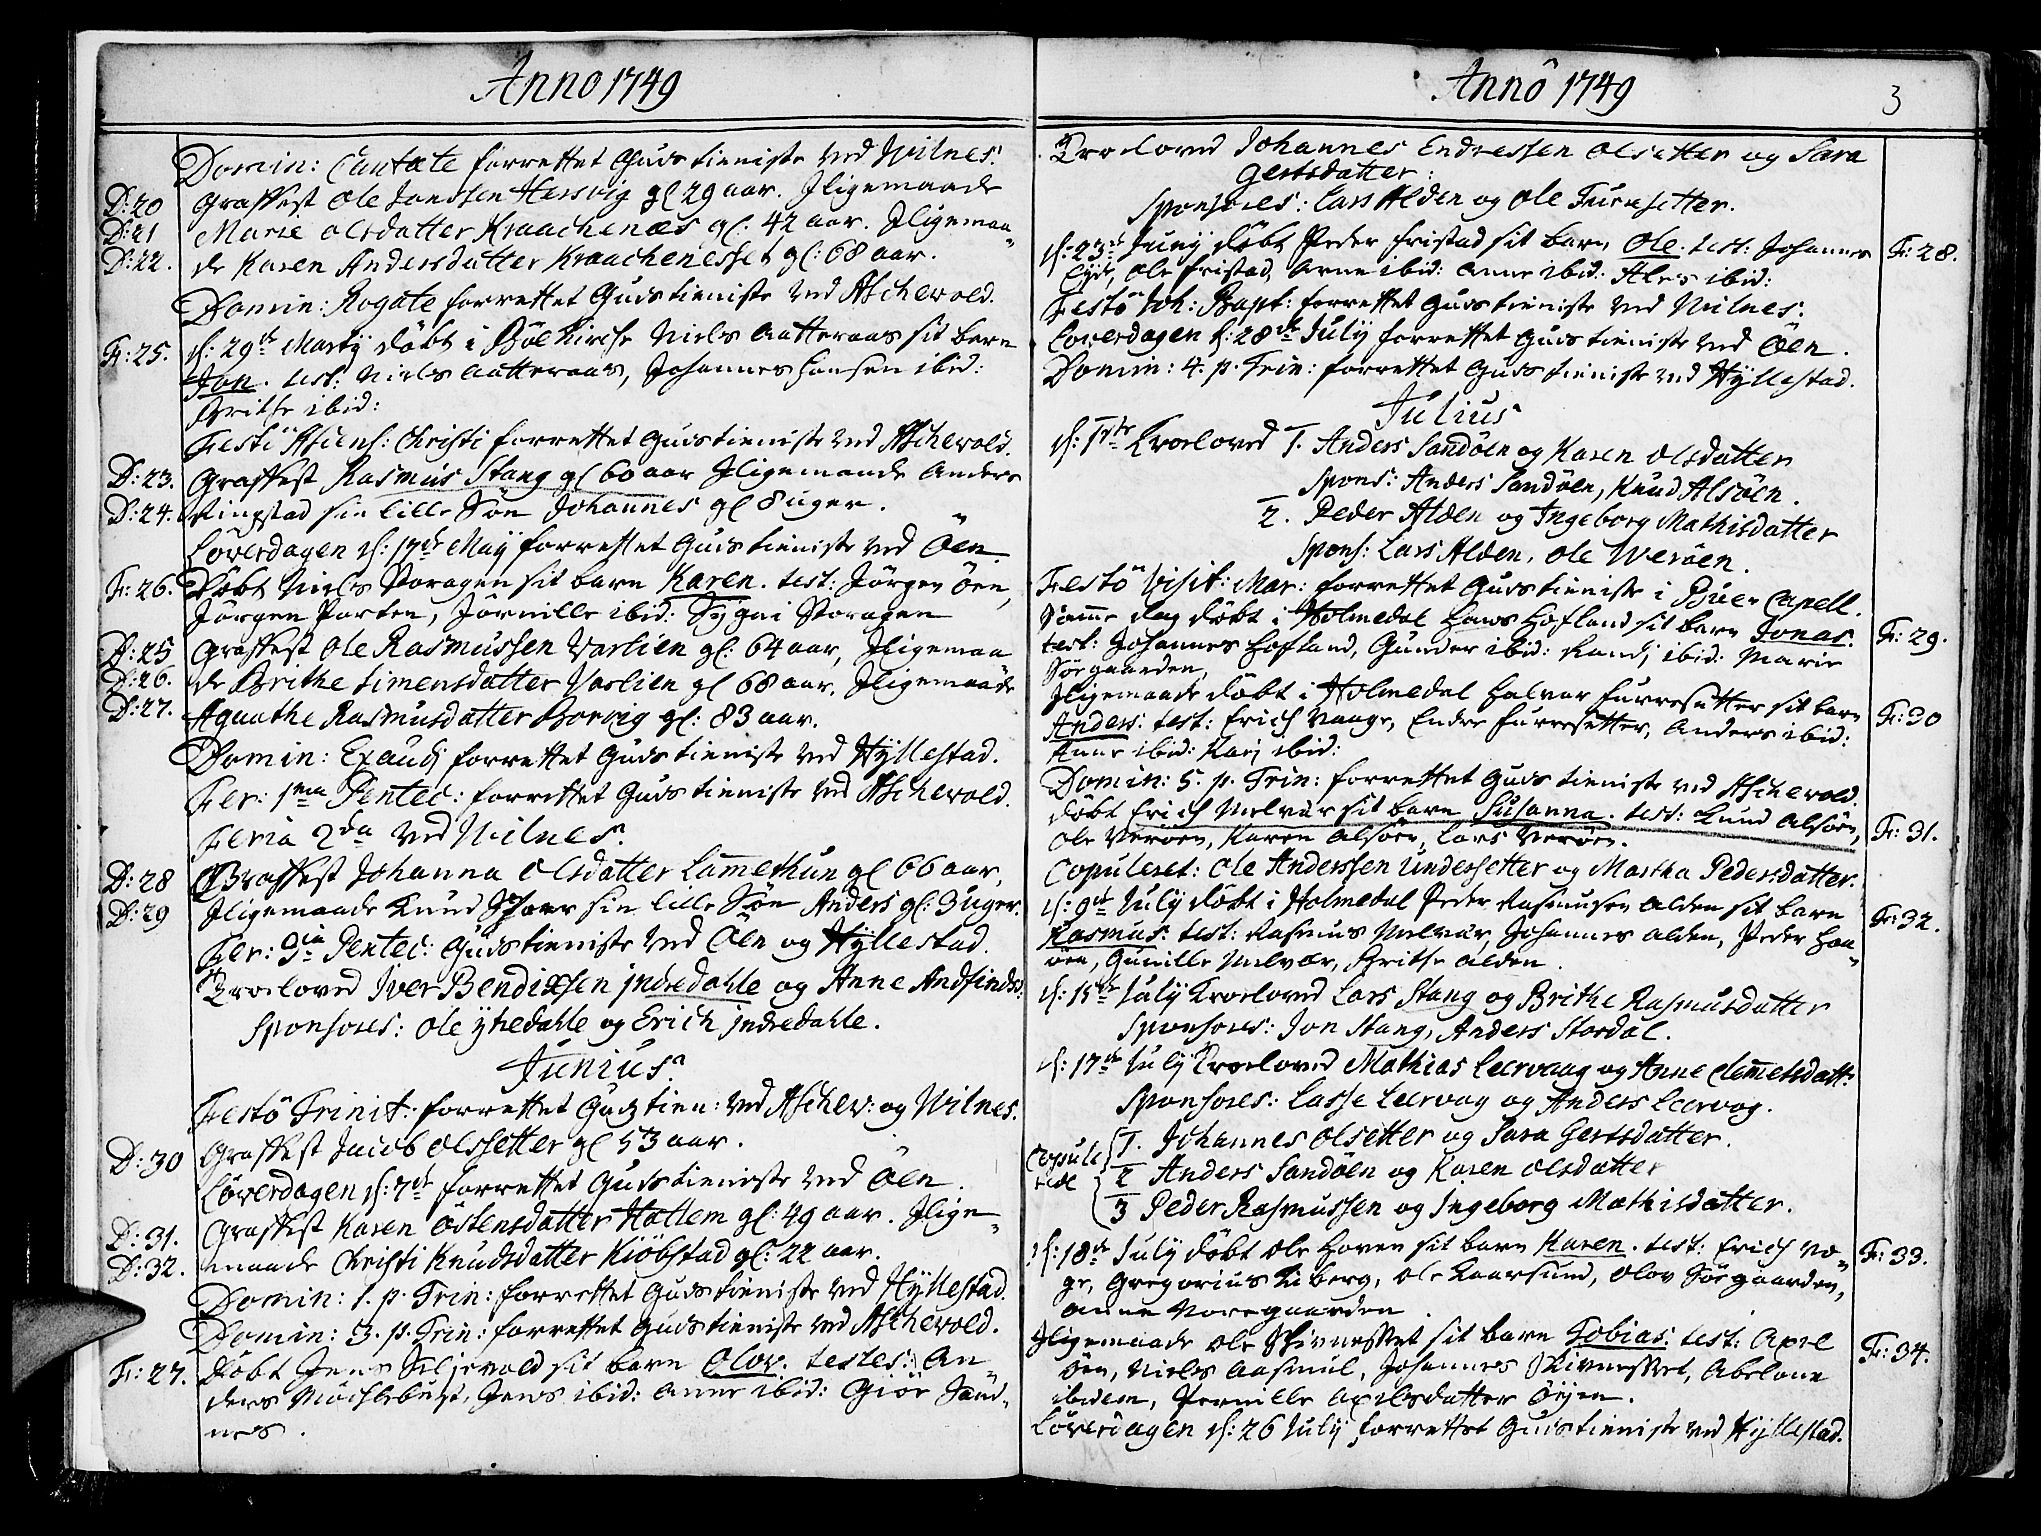 Anno 1749
Domin: Cantate forrettet Guds tieniste ved Wilnes.
D: 20 Graffest Ole Hersvig gl 29 aar. Iligemaade
D: 21 Marie Olsdatter Kraachenæs gl: 42 aar. Iligemaa„
D: 22. de Karen Andersdatter Kraachenesset gl: 68 aar.
Domin: Rogate forrettet Guds tieniste ved Aschevold.
Fr: 25. d: 29de Martij döbt i Böe Kirche Niels Aatteraas sit barn
Jon. test: Niels Aatteraas, Johannes Hansen ibid:
Brithe ibid:
Festô Ascens: Christi forrettet Guds tieniste ved Aschevold.
D: 23. Graffest Rasmus Stang gl 60 aar Iligemaade Anders
D: 24. Ringstad sin lille Sön Johannes gl 8 uger.
Löverdagen d: 17de Maij forrettet Guds tieniste ved Öen.
Fr: 26. Döbt Niels Storagen sit barn Karen. test: Jörgen Öen,
Jörgen Porten, ibid: Sygni Storagen
D: 25 Graffest Ole Rasmussen Varlien gl: 64 aar, Iligemaa
D: 26. de Brithe Simensdatter Varlien gl 68 aar, Iligemaade
D: 27. Aguathe Rasmusdatter Borvig gl: 83 aar.
Domin: Exaudj forrettet Guds tieniste ved Hyllestad.
Fer: 1ma Pentec: forrettet Guds tieniste ved Aschevold.
Feria 2da ved Wilnes.
D: 28 Graffest Johanna Olsdatter Lamethun gl 66 aar,
D: 29 Iligemaade Knud sin lille Sön Anders gl: 3 uger.
Fer: 3tia Pentec: Guds tieniste ved Öen og Hyllestad.
Troeloved Iver Bendixsen indredahle og Anne Andfindsd:
Sponsores: Ole ytredahle og Erich jndredahle.
Junius.
Festô Trinit: forrettet Guds tien: ved Aschev: og Wilnes.
D: 30 Graffest Jacob Olssetter gl 53 aar.
Löverdagen d: 7de forrettet Guds tieniste ved Öen.
D: 31. Graffest Karen Östensdatter Hatlem gl: 49 aar. Ilige„
D: 32. maade Christi Knudsdatter Kiöbstad gl: 22 aar.
Domin: 1. p. Trin: forrettet Guds tieniste ved Hyllestad.
Domin: 3. p. Trin: forrettet Guds tieniste ved Aschevold.
Fr: 27. Döbt Jens sit barn Olov. testes: An„
ders Jens ibid: Anne ibid: Giör Sand„
nes.
Annô 1749 3
Troeloved Johannes Endressen Olsetter og Sara
Gertsdatter:
Sponsores: Lars Alden og Ole Furesetter.
d: 23de Junij döbt Peder Fristad sit barn Ole. test: Johannes Fr: 28.
Eyde, Ole Fristad, Arne ibid: Anne ibid: Ales ibid:
Festô Joh: Bapt: forrettet Guds tieniste ved Wilnes.
Löverdagen d: 28de Julij forrettet Guds tieniste ved Öen.
Domin: 4. p. Trin: forrettet Guds tieniste ved Hyllestad.
Julius
d: 1ste Troeloved 1. Anders Sandöen og Karen Olsdatter
Spons: Anders Sandöen, Knud Alsöen.
2. Peder Alden og Ingeborg Mathisdatter
Spons: Lars Alden, Ole Weröen.
Festô Visit: Mar: forrettet Guds tieniste i Böe Capell.
Samme dag döbt i Holmedal Hofland sit barn Jonas. Fr: 29.
test: Johannes Hofland, Gunder ibid: Randj ibid: Marie
Sörgaarden,
Iligemaade döbt i Holmedal Halvar Furresetter sit barn Fr: 30
Anders: test: Erich Vaage, Endre Furresetter, Anders ibid:
Anne ibid: Karj ibid:
Domin: 5. p. Trin: forrettet Guds tieniste ved Aschevold.
döbt Erich Melvær sit barn Susanna. test: Knud Alsöen, Fr: 31.
Ole Veröen, Karen Alsöen, Lars Veröen.
Copuleret: Ole Anderssen Undersetter og Martha Pedersdatter.
d: 9de Julij döbt i Holmedal Peder Rasmusen Alden sit barn Fr: 32.
Rasmus. test: Rasmus Melvær, Johannes Alden, Peder Haa„
öen, Gunille Melvær, Brithe Alden.
d: 15de Julij Troeloved Lars Stang og Brithe Rasmusdatter
Sponsores: Jon Stang, Anders Stordal.
d: 17de Julij Troeloved Mathias Leervaag og Anne Clemmetsdatt:
Sponsores: Lasse Leervog og Anders Leervog.
Copule rede 1. Johannes Olsetter og Sara Gertsdatter.
2 Anders Sandöen og Karen Olsdatter
3 Peder Rasmussen og Ingeborg Mathisdatter.
d: 18de Julij döbt Ole Hoven sit barn Karen. test: Erich Vo„ Fr: 33.
ge, Gregorius Kiberg, Ole Kaarsund, Olov Sörgaarden,
Anne Noregaarden.
Iligemaade Ole Skivenesset sit barn Tobias. test: Axel Fr: 34.
Öen, Niels Aasmul, Johannes Skivenesset, Abelone
ibidem, Pernille Axelsdatter Öyen.
Löverdagen d: 26 Julij forrettet Guds tieniste ved Hyllestad.